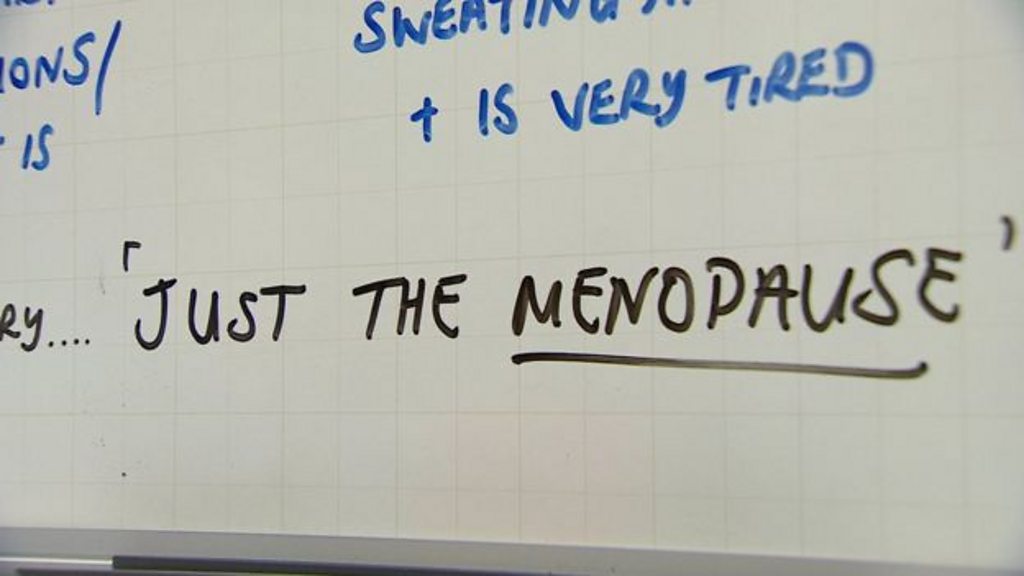 SWEATING
IONS/
+ IS VERY TIRED
IS
RY.... 'JUST THE MENOPAUSE'